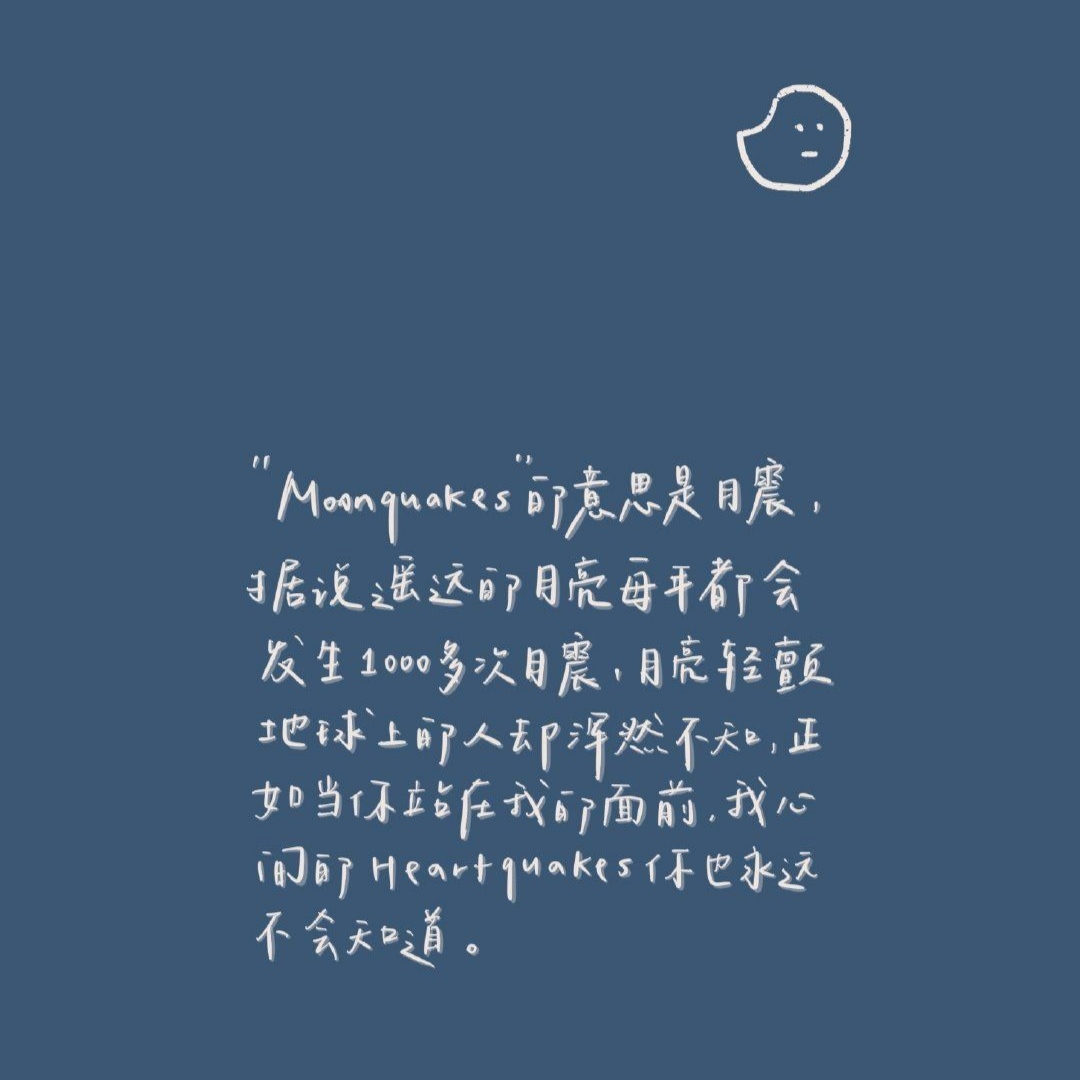 "Moonquakes"的意思是月震,
据说遥远的月亮每年都会
发生1000多次月震,月亮轻颤
地球上的人却浑然不知,正
如当你站在我的面前,我心
间的Heartquakes你也永远
不会知道。